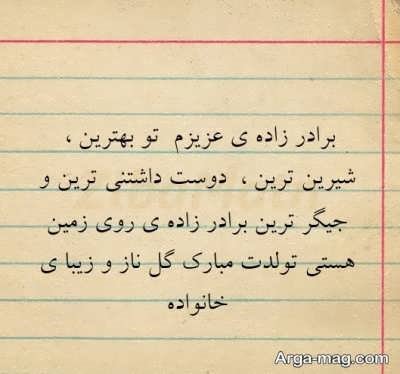 برادر زاده ی عزیزم تو بهترین ،
شیرین ترین ، دوست داشتنی ترین و
جیگر ترین برادر زاده ی روی زمین
هستی تولدت مبارک گل ناز و زیبا ی
خانواده
Arga-mag.com